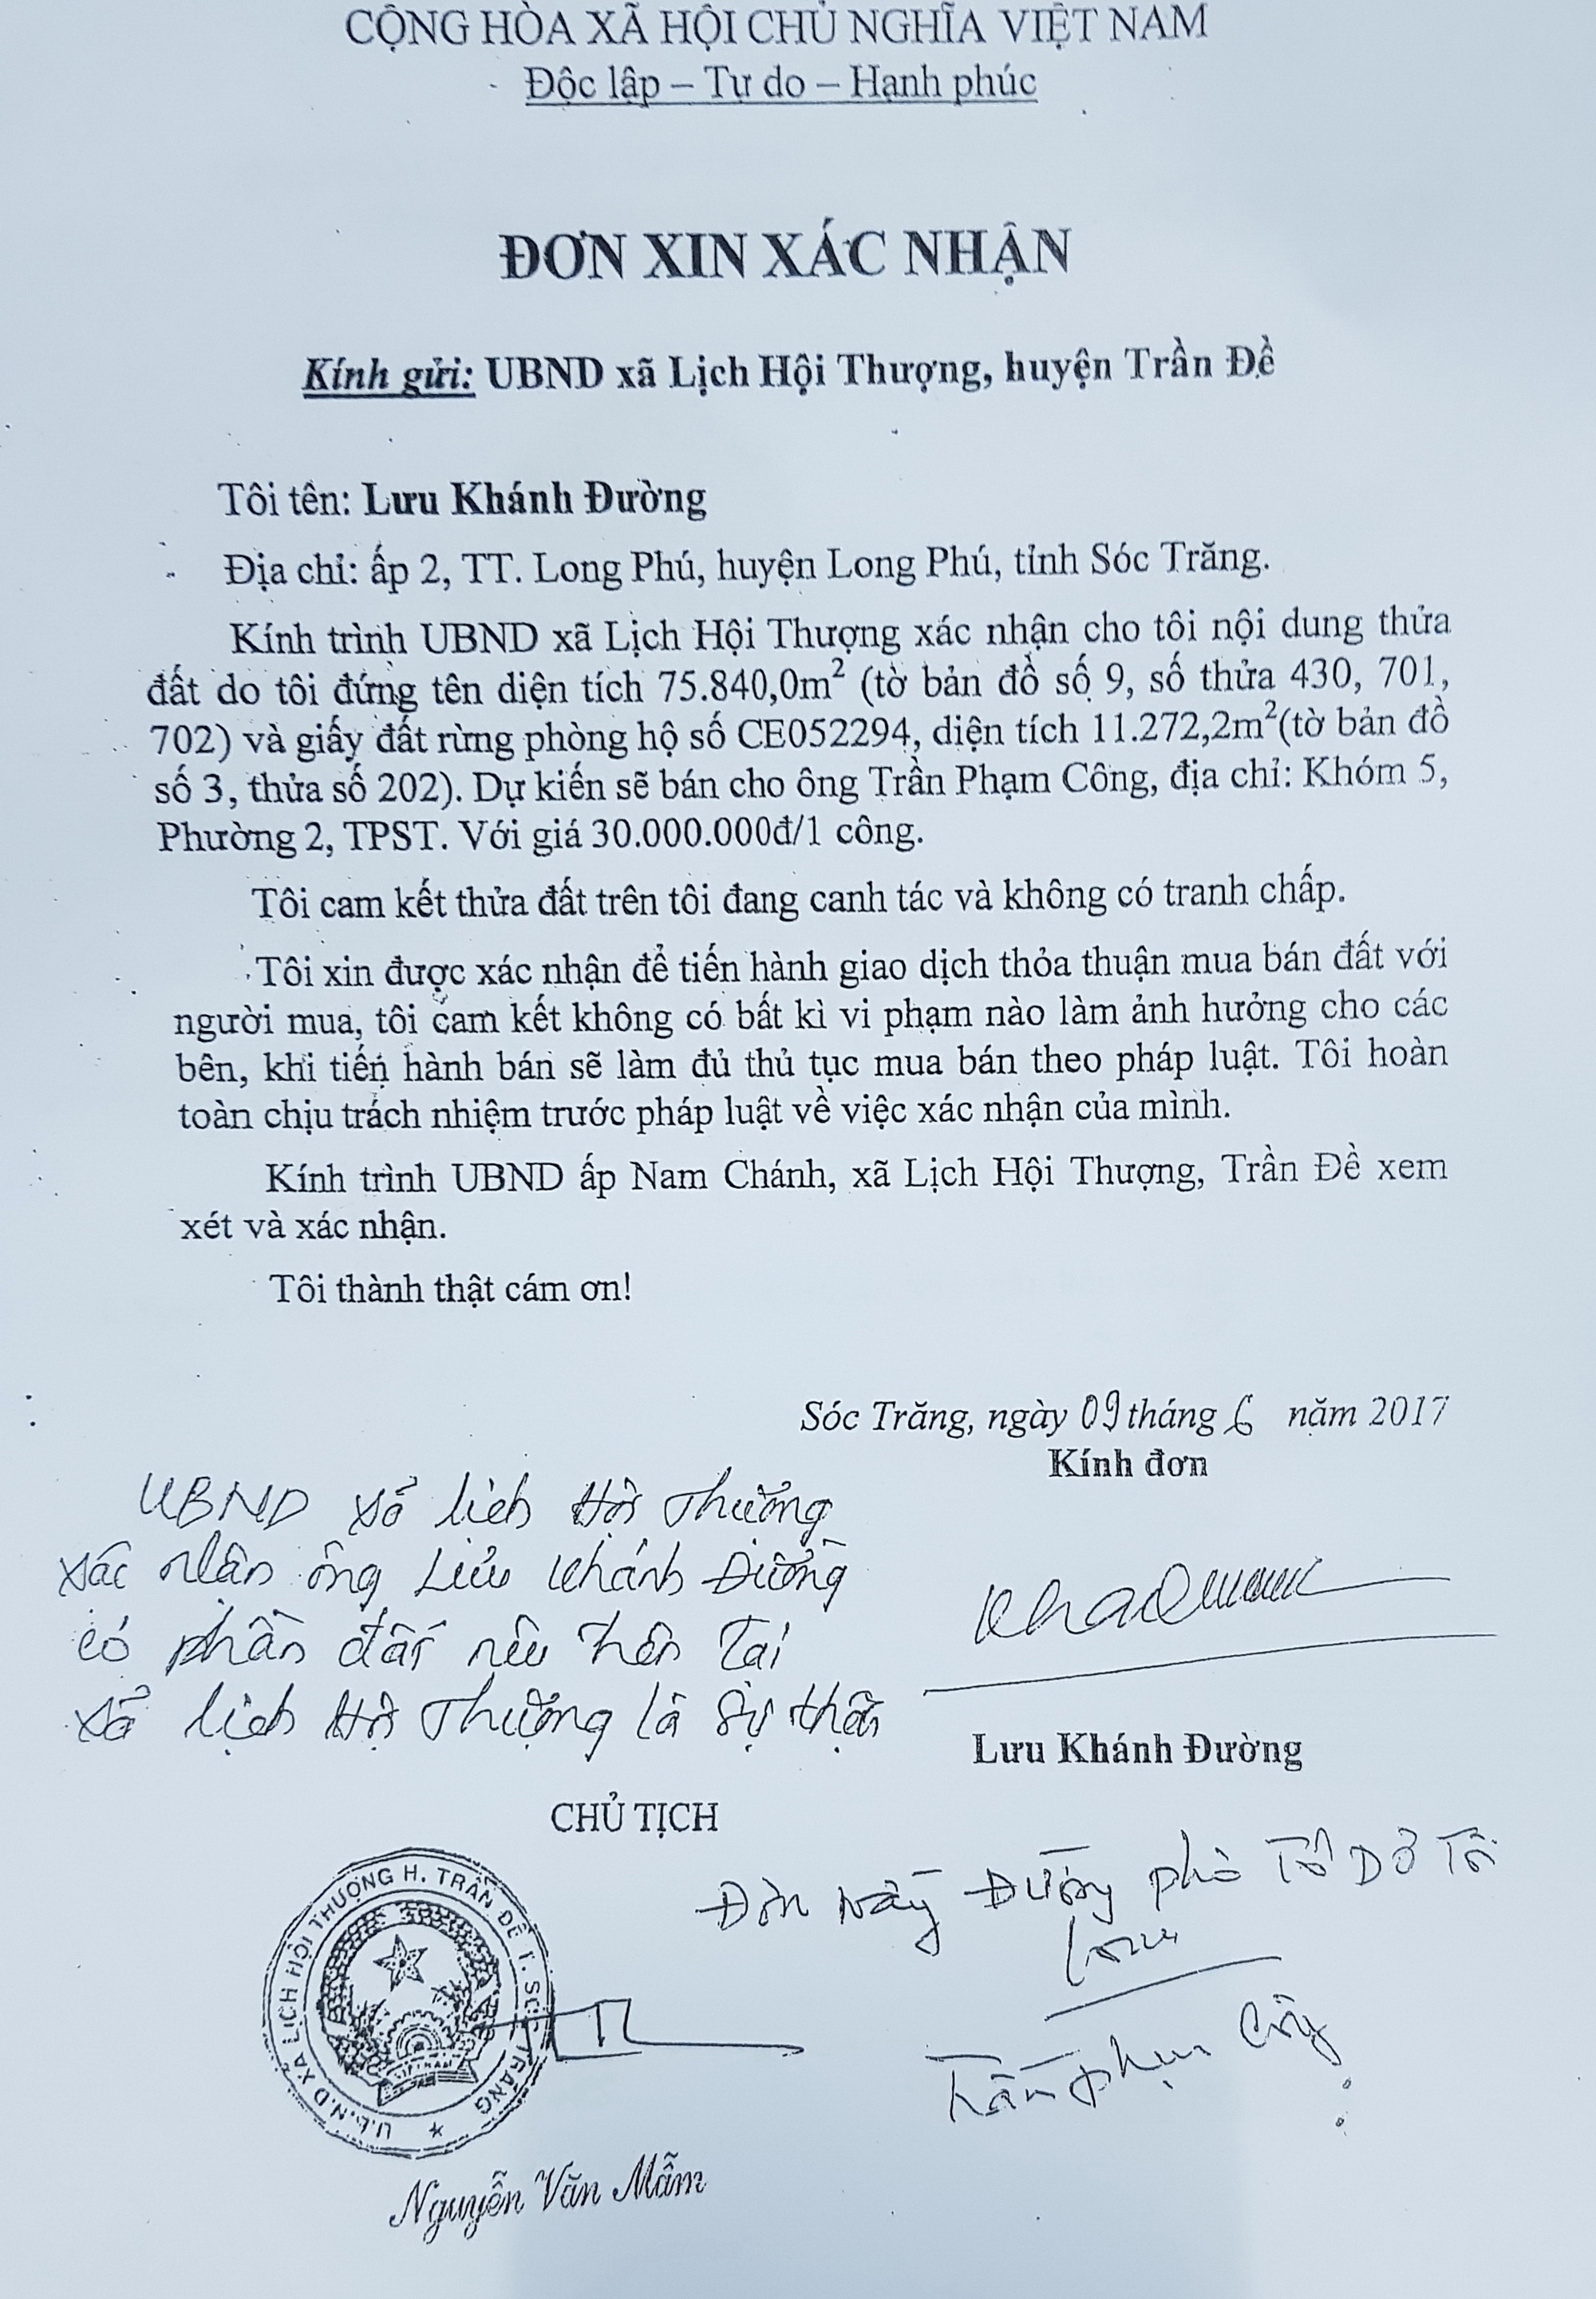 CỘNG HÒA XÃ HỘI CHỦ NGHĨA VIỆT NAM
Độc lập – Tự do – Hạnh phúc
ĐƠN XIN XÁC NHẬN
Kính gửi: UBND xã Lịch Hội Thượng, huyện Trần Đề
Tôi tên: Lưu Khánh Đường
Địa chỉ: ấp 2, TT. Long Phú, huyện Long Phú, tỉnh Sóc Trăng.
Kính trình UBND xã Lịch Hội Thượng xác nhận cho tôi nội dung thửa
đất do tôi đứng tên diện tích 75.840,0m² (tờ bản đồ số 9, số thửa 430, 701,
702) và giấy đất rừng phòng hộ số CE052294, diện tích 11.272,2m²(tờ bản đồ
số 3, thửa số 202). Dự kiến sẽ bán cho ông Trần Phạm Công, địa chỉ: Khóm 5,
Phường 2, TPST. Với giá 30.000.000đ/1 công.
Tôi cam kết thửa đất trên tôi đang canh tác và không có tranh chấp.
Tôi xin được xác nhận để tiến hành giao dịch thỏa thuận mua bán đất với
người mua, tôi cam kết không có bất kì vi phạm nào làm ảnh hưởng cho các
bên, khi tiến hành bán sẽ làm đủ thủ tục mua bán theo pháp luật. Tôi hoàn
toàn chịu trách nhiệm trước pháp luật về việc xác nhận của mình.
Kính trình UBND ấp Nam Chánh, xã Lịch Hội Thượng, Trần Đề xem
xét và xác nhận.
Tôi thành thật cám ơn!
Sóc Trăng, ngày 09 tháng 6 năm 2017
Kính đơn
UBND xã Lịch Hội Thượng
xác nhận ông Lưu Khánh Đường
có phần đất nêu trên tại
xã Lịch Hội Thượng là sự thật
Lưu Khánh Đường
CHỦ TỊCH
Đơn này Đường
Trần Phạm Công
U.B.N.D XÃ LỊCH HỘI THƯỢNG H. TRẦN ĐỀ T. SÓC TRĂNG
VIỆT NAM
Nguyễn Văn Mẫm